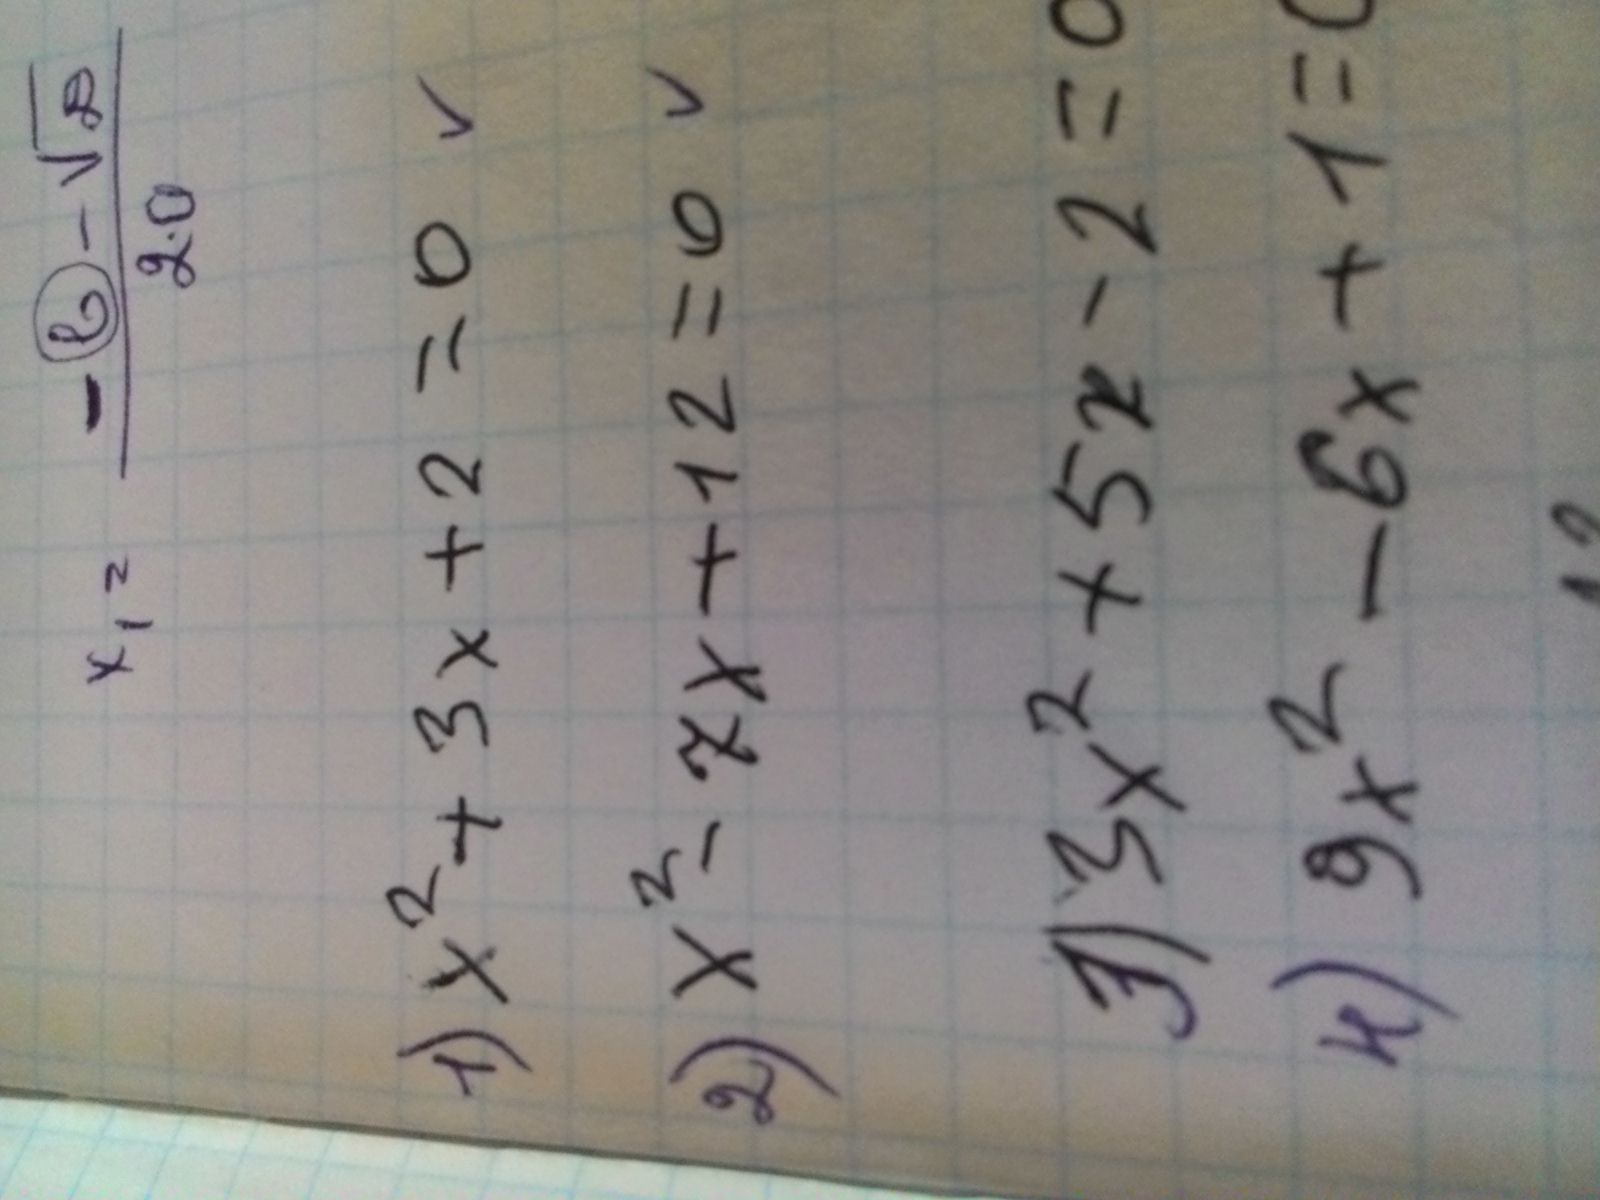 x₁ = (-b - √D) / 2·a
1) x² + 3x + 2 = 0 ✓
2) x² - 7x + 12 = 0 ✓
3) 3x² + 5x - 2 = 0
4) 9x² - 6x + 1 = 0